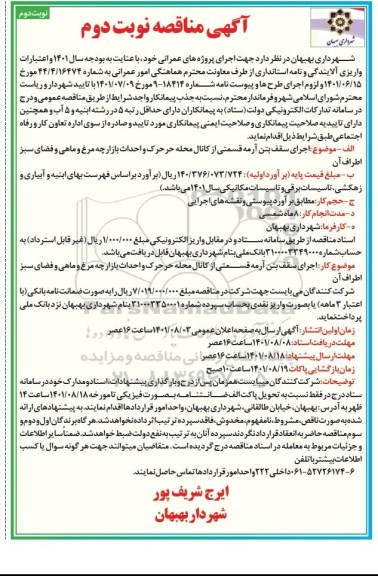 نوبت دوم
آگهی مناقصه نوبت دوم
شهرداری بهبهان
شـــهرداری بهبهان در نظر دارد جهت اجرای پروژه های عمرانی خود، با عنایت به بودجه سال ۱۴۰۱ و اعتبارات
واریزی آلایندگی و نامه استانداری از طرف معاونت محترم هماهنگی امور عمرانی به شماره ۴۴/۴/۱۶۴۷۴ مورخ
۱۴۰۱/۰۶/۱۵ و لزوم اجرای طرح ها و پیوست نامه شــماره ۱۸۴۱۴-۹ مورخ ۱۴۰۱/۰۷/۰۹ با تایید شهردار و ریاست
محترم شورای اسلامی شهر و فرماندار محترم، نسبت به جذب پیمانکار واجد شرایط از طریق مناقصه عمومی و درج
در سامانه تدارکات الکترونیکی دولت (ستاد) به پیمانکاران دارای حداقل رتبه ۵ در رشته ابنیه و آب و همچنین
دارای تاییدیه صلاحیت پیمانکاری و صلاحیت ایمنی پیمانکاری مورد تایید و صادره از سوی اداره تعاون کار و رفاه
اجتماعی طبق شرایط ذیل اقدام نماید.
الف - موضوع: اجرای سقف بتن آرمه قسمتی از کانال محله حر حرک و احداث بازارچه مرغ و ماهی و فضای سبز
اطراف آن
ب - مبلغ قیمت پایه (بر آورد اولیه): ۱۴۰/۳۷۶/۰۷۳/۷۲۴ ریال (بر آورد بر اساس فهرست بهای ابنیه و آبیاری و
زهکشی، تاسیسات برقی و تاسیسات مکانیکی سال ۱۴۰۱ می باشد.)
ج - حجم کار: مطابق بر آورد پیوستی و نقشه های اجرایی
د - مدت انجام کار: ۸ ماه شمسی
ه - کارفرما: شهرداری بهبهان
اسناد مناقصه از طریق سامانه ســتاد و در مقابل واریز الکترونیکی مبلغ ۱/۰۰۰/۰۰۰ ریال (غیر قابل استرداد) به
حساب شماره ۳۱۰۰۰۰۳۳۴۹۰۰۰ بانک ملی بنام شهرداری بهبهان قابل دریافت می باشد.
موضوع کار: اجرای سقف بتن آرمه قسمتی از کانال محله حر حرک و احداث بازارچه مرغ و ماهی و فضای سبز
اطراف آن
شرکت کنندگان می بایست جهت شرکت در مناقصه مبلغ ۷/۰۱۹/۰۰۰/۰۰۰ ریال را به صورت ضمانت نامه بانکی (با
اعتبار ۳ ماهه) یا بصورت واریز نقدی بحساب سپرده شماره ۳۱۰۰۰۳۳۵۰۰۰۱ بنام شهرداری بهبهان نزد بانک ملی
پرداخت نماید.
زمان اولین انتشار: آگهی ارسال به صفحه اعلان عمومی ۱۴۰۱/۰۸/۰۳ ساعت ۱۶ عصر
مهلت دریافت اسناد: ۱۴۰۱/۰۸/۰۸ ساعت ۱۶ عصر
مهلت ارسال پیشنهاد: ۱۴۰۱/۰۸/۱۸ ساعت ۱۶ عصر
زمان بازگشایی پاکات: ۱۴۰۱/۰۸/۱۹ ساعت ۱۰ صبح
توضیحات: شرکت کنندگان میبایست همزمان پس از درج و بارگذاری پیشنهادات، اسناد و مدارک خود در سامانه
ستاد درج فقط نسبت به تحویل پاکت الف ضمانتنامه بصورت فیزیکی تا مورخه ۱۴۰۱/۰۸/۱۸ ساعت ۱۴
ظهر به آدرس: بهبهان، خیابان طالقانی، شهرداری بهبهان، واحد امور قراردادها اقدام نمایند. به پیشنهادهای ارائه
شده به صورت ناقص، مشروط، نامفهوم، مخدوش، فاقد سپرده ترتیب اثر داده نخواهد شد. هر گاه برندگان اول و دوم و
سوم مناقصه حاضر به انعقاد قرارداد نگردند سپرده آنان به ترتیب به نفع دولت ضبط خواهد شد. ضمناً سایر اطلاعات
و جزئیات مربوط به معامله در اسناد مناقصه درج گردیده است. متقاضیان میتوانند جهت هر گونه سوال یا کسب
اطلاعات بیشتر با تلفن
۰۶۱-۵۲۷۲۶۱۷۴-۶ داخلی ۲۲۲ واحد امور قراردادها تماس حاصل نمایند.
ایرج شریف پور
شهردار بهبهان